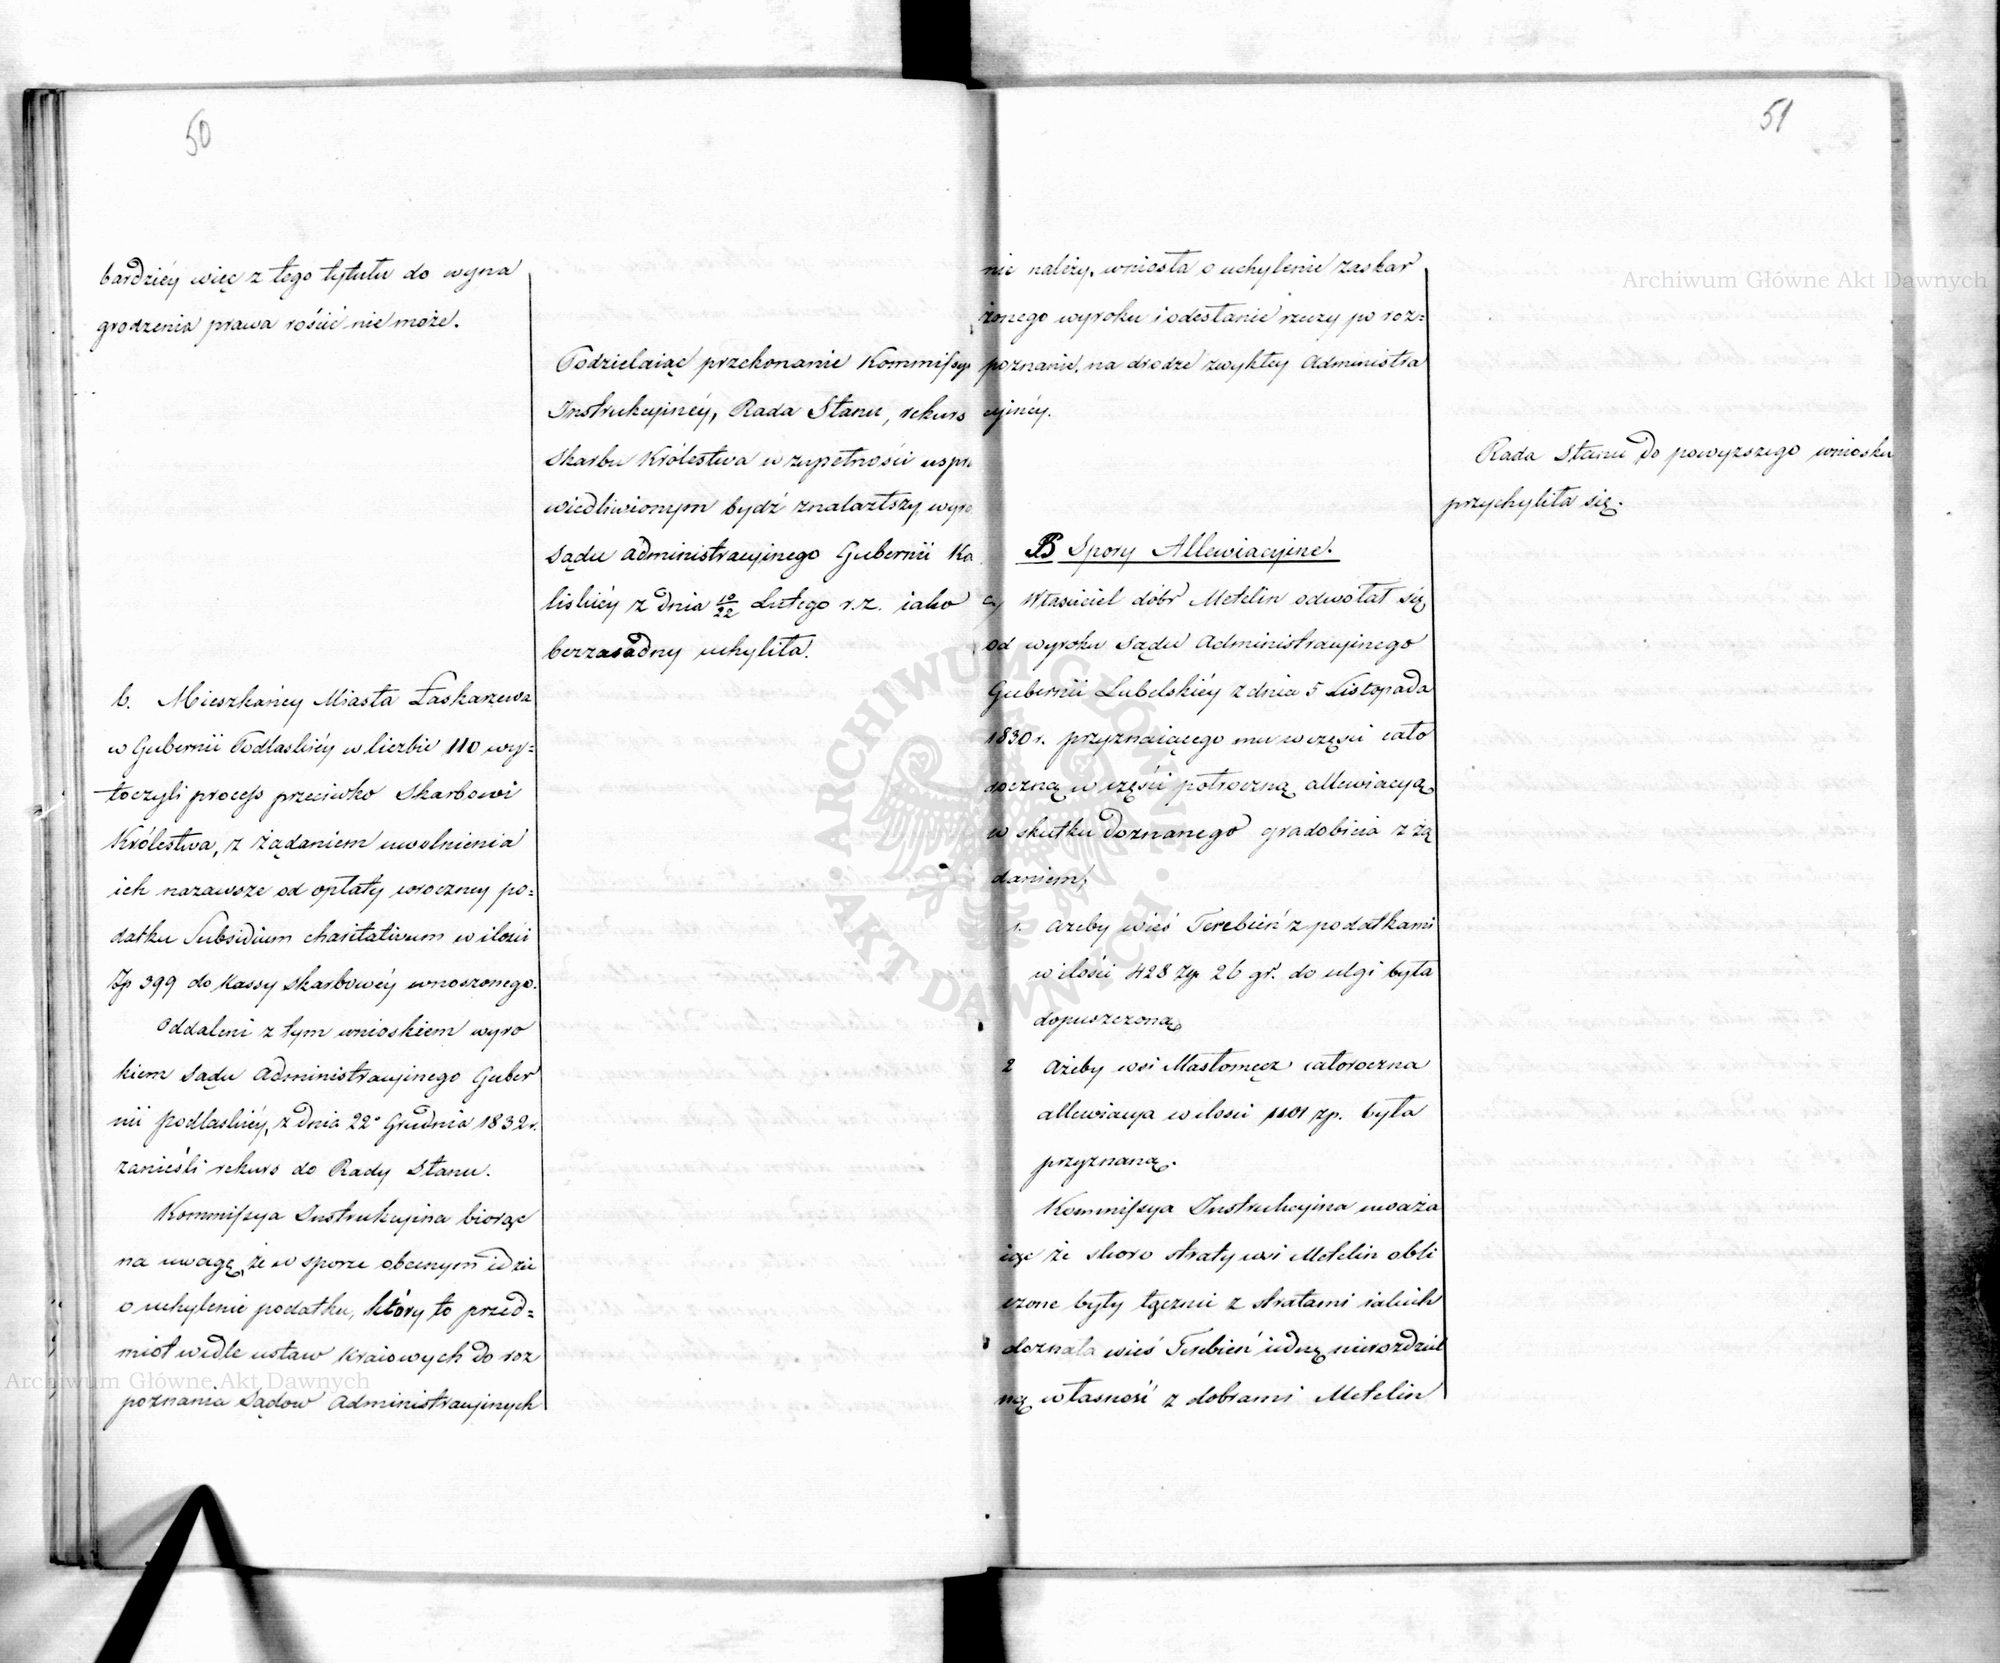 50
bardziéy więc z tego tytułu do wyna
grodzenia prawa rościć nie może.
Podzielaiąc przekonanie Kommissyi
Instrukcyinéy, Rada Stanu, rekurs
Skarbu Królestwa w zupełności uspra
wiedliwionym bydź znalazłszy, wyro
Sądu Administracyinego Gubernii Ka
liskiéy z dnia 10/22 Lutego r. z. iako
bezzasadny uchyliła.
b. Mieszkańcy Miasta Łaskarzewa
w Gubernii Podlaskiéy w liczbie 110 wy=
toczyli process przeciwko Skarbowi
Królestwa, z żądaniem uwolnienia
ich nazawsze od opłaty coroczney po=
datku Subsidium charitativum w ilości
Zp 399 do Kassy Skarbowéy wnoszonego.
Oddaleni z tym wnioskiem wyro
kiem Sądu Administracyinego Guber
nii podlaskiéy, z dnia 22o Grudnia 1832 r.
zanieśli rekurs do Rady Stanu.
Kommissya Instrukcyina biorąc
na uwagę, że w sporze obecnym idzie
o uchylenie podatku, który to przed=
miot wedle ustaw Kraiowych do roz
poznania Sądów Administracyinych
51
nie należy, wniosła o uchylenie zaskar
żonego wyroku i odesłanie rzeczy po roz=
poznanie, na drodze zwykłey Administra
cyinéy.
Rada Stanu do powyższego wniosku
przychyliła się.
B Spory Allewiacyine.
a) Właściciel dóbr Metelin odwołał się
od wyroku Sądu Administracyinego
Gubernii Lubelskiéy z dnia 5 Listopada
1830 r. przyznaiącego mu w części cało
roczną w części półroczną allewiacyą
w skutku doznanego gradobicia z żą
daniem,
1. Ażeby wieś Terebień z podatkami
w ilości 428 zp. 26 gr. do ulgi była
dopuszczoną
2 Ażeby wsi Masłomęcz całoroczna
allewiacya w ilości 1101 zp. była
przyznaną.
Kommissya Instrukcyina uważa
iąc że skoro straty wsi Metelin obli
czone były łącznie z stratami iakich
doznała wieś Terebień iedną nierozdziel
ną własność z dobrami Metelin
Archiwum Główne Akt Dawnych
Archiwum Główne Akt Dawnych
ARCHIWUM GŁÓWNE AKT DAWNYCH